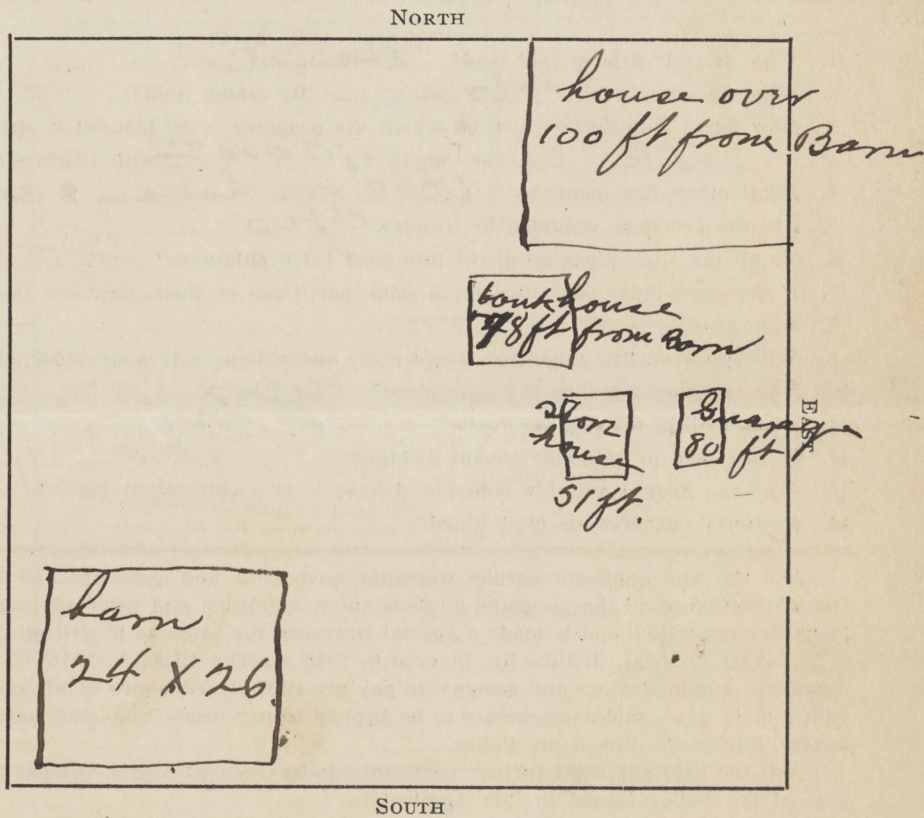 NORTH
house over
100 ft from Barn
tankhouse
48 ft from Barn
Stor
house
51 ft.
Garage
80 ft
EAST
barn
24 X 26
SOUTH